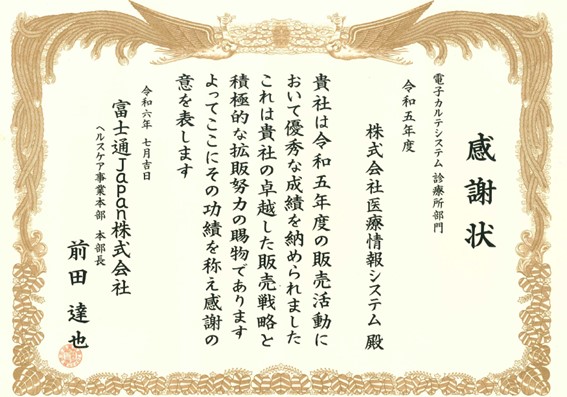 感謝状
電子カルテシステム 診療所部門
令和五年度
株式会社医療情報システム 殿
貴社は令和五年度の販売活動に
おいて優秀な成績を納められました
これは貴社の卓越した販売戦略と
積極的な拡販努力の賜物であります
よってここにその功績を称え感謝の
意を表します
令和六年 七月吉日
富士通Japan株式会社
ヘルスケア事業本部 本部長
前田 達也